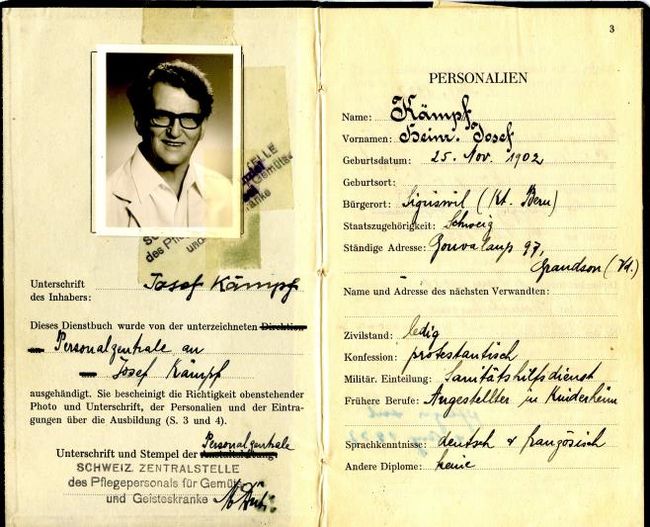 STELLE
Gemüts-
anke
SC
des Pfle
und
Unterschrift
des Inhabers:
Josef Kämpf
Dieses Dienstbuch wurde von der unterzeichneten Direktion
Personalzentrale an
Josef Kämpf
ausgehändigt. Sie bescheinigt die Richtigkeit obenstehender
Photo und Unterschrift, der Personalien und der Eintra-
gungen über die Ausbildung (S. 3 und 4).
Personalzentrale
Unterschrift und Stempel der
SCHWEIZ. ZENTRALSTELLE
des Pflegepersonals für Gemüts-
und Geisteskranke
3
PERSONALIEN
Name: Kämpf
Vornamen: Heinr. Josef
Geburtsdatum: 25. Nov. 1902
Geburtsort:
Bürgerort: Sigriswil (Kt. Bern)
Staatszugehörigkeit: Schweiz
Ständige Adresse: 97,
Grandson (Vd.)
Name und Adresse des nächsten Verwandten:
Zivilstand: ledig
Konfession: protestantisch
Militär. Einteilung: Sanitätshilfsdienst
Frühere Berufe: Angestellter in Kinderheim
Sprachkenntnisse: deutsch & französisch
Andere Diplome: keine